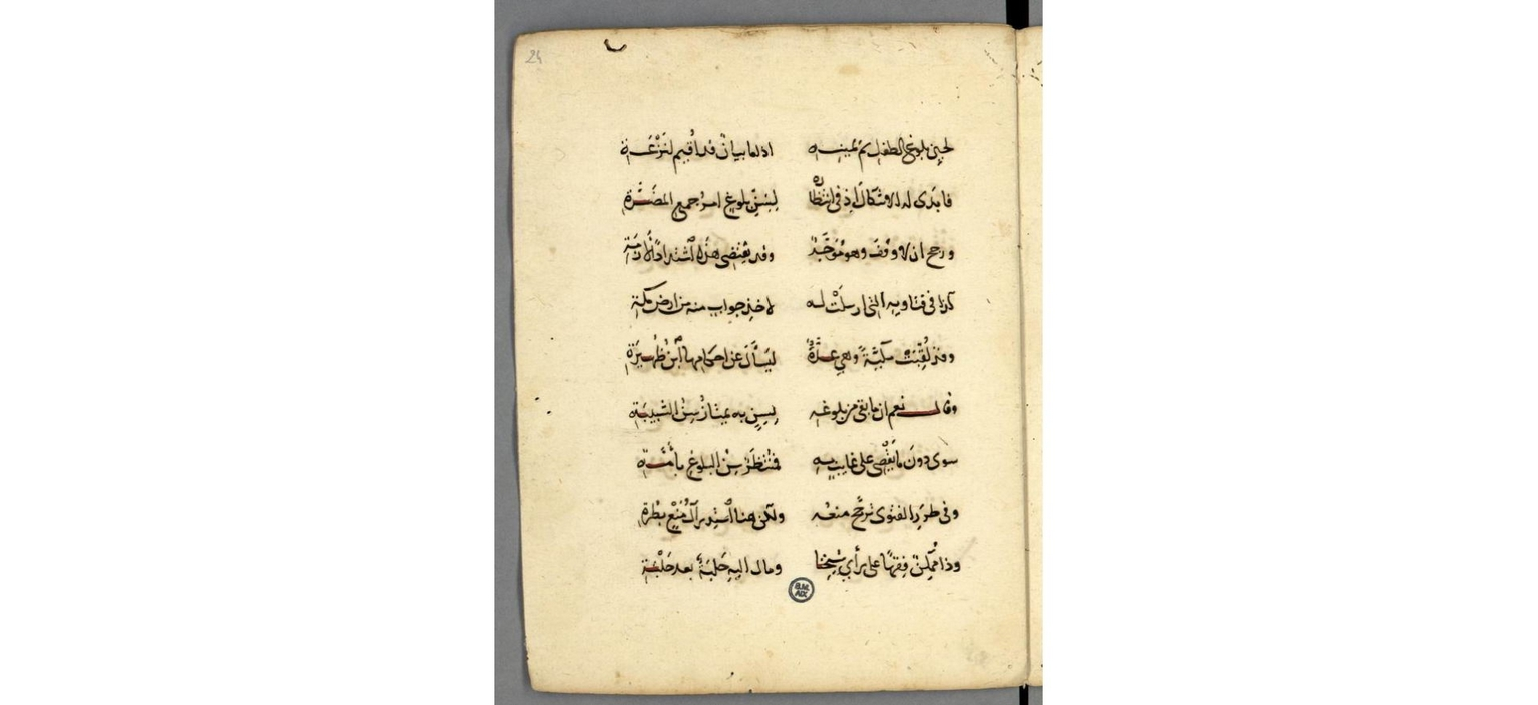 24
لحين بلوغ الطفل ثم يمينه اذ لها بيان قد اقيم لنزعة
فابدى له الاشكال اذ فى انتظاره لسن بلوغ امر جميع المضرة
ورجح ان لا وقف وهو وقد يقتضى هذا
كذا فى فتاويه التى ارسلت له لاخذ جواب منه من ارض مكة
وقد لقبت مكية وهي عدة ليسأل عن احكامها ابن ظهيرة
وقال نعم ان ما بقى من بلوغه لسن به يمتاز سن الشبيبة
سوى دون ما يقضى على غايب به فتنظر سن البلوغ
وفى طرد الفتوى ترجح منعه ولكن هنا
وذا ممكن فقها على رأي شيخنا ومال اليه حلبة بعد حلبة
B.M. AIX